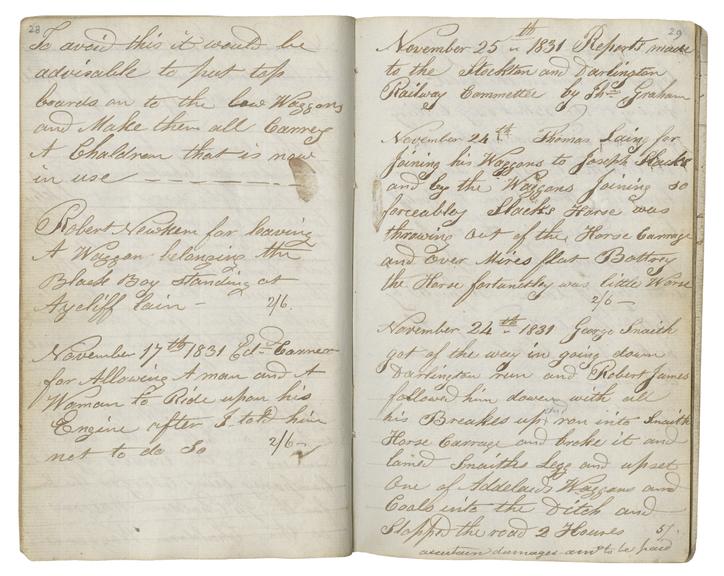 28
To avoid this it would be
advisable to put top
boards on to the low Waggons
and Make them all Carrey
A Chaldren that is now
in use
Robert Newhem for leaving
A Waggon belonging the
Black Boy Standing at
Aycliff lain - 2/6.
November 17th 1831 Edd Conner
for Allowing A man and A
Woman to Ride upon his
Engine after I told him
not to do So 2/6-
29
November 25th 1831 Reports made
to the Stockton and Darlington
Railway Committee by Thos Graham
November 24th Thomas Laing for
Joining his Waggons to Joseph Slacks
and by the Waggons Joining so
forceabley Slack's Horse was
throwing out of the Horse Carrage
and Over Mires flat Battrey
the Horse fortunetley was little Worse
2/6 -
November 24th 1831 George Snaith
got of the way in going down
Darlington run and Robert James
followed him down with all
his Breakes up and ran into Snaith
Horse Carrage and broke it and
lamed Snaiths Legg and upset
One of Addelaids Waggons and
Coals into the Ditch and
Stopped the road 2 Houres 5/.
ascertain damages amt to be paid